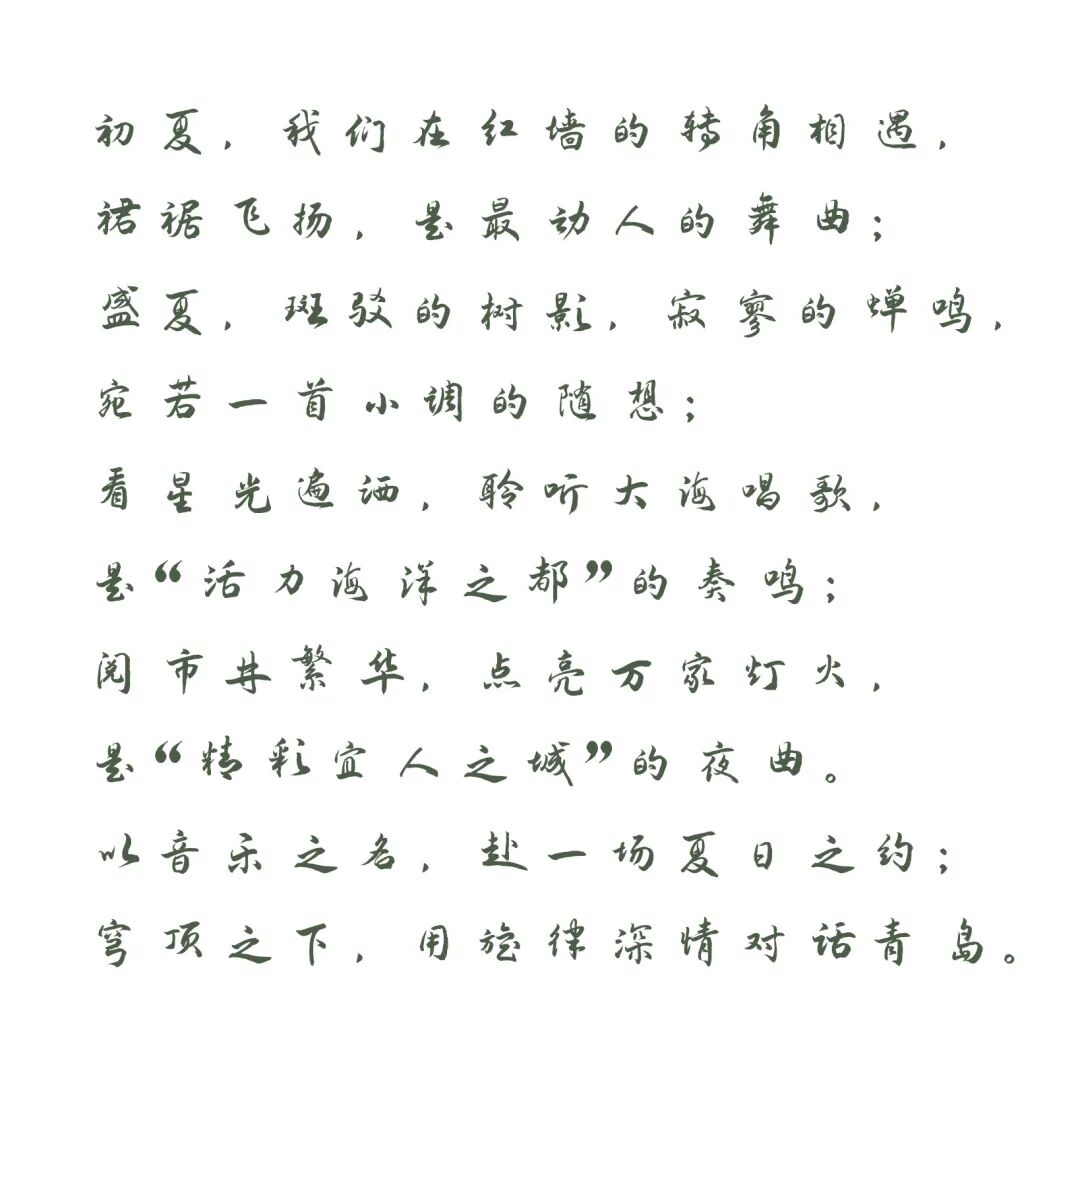 初夏，我们在红墙的转角相遇，
裙裾飞扬，是最动人的舞曲；
盛夏，斑驳的树影，寂寥的蝉鸣，
宛若一首小调的随想；
看星光遍洒，聆听大海唱歌，
是“活力海洋之都”的奏鸣；
阅市井繁华，点亮万家灯火，
是“精彩宜人之城”的夜曲。
以音乐之名，赴一场夏日之约；
穹顶之下，用旋律深情对话青岛。